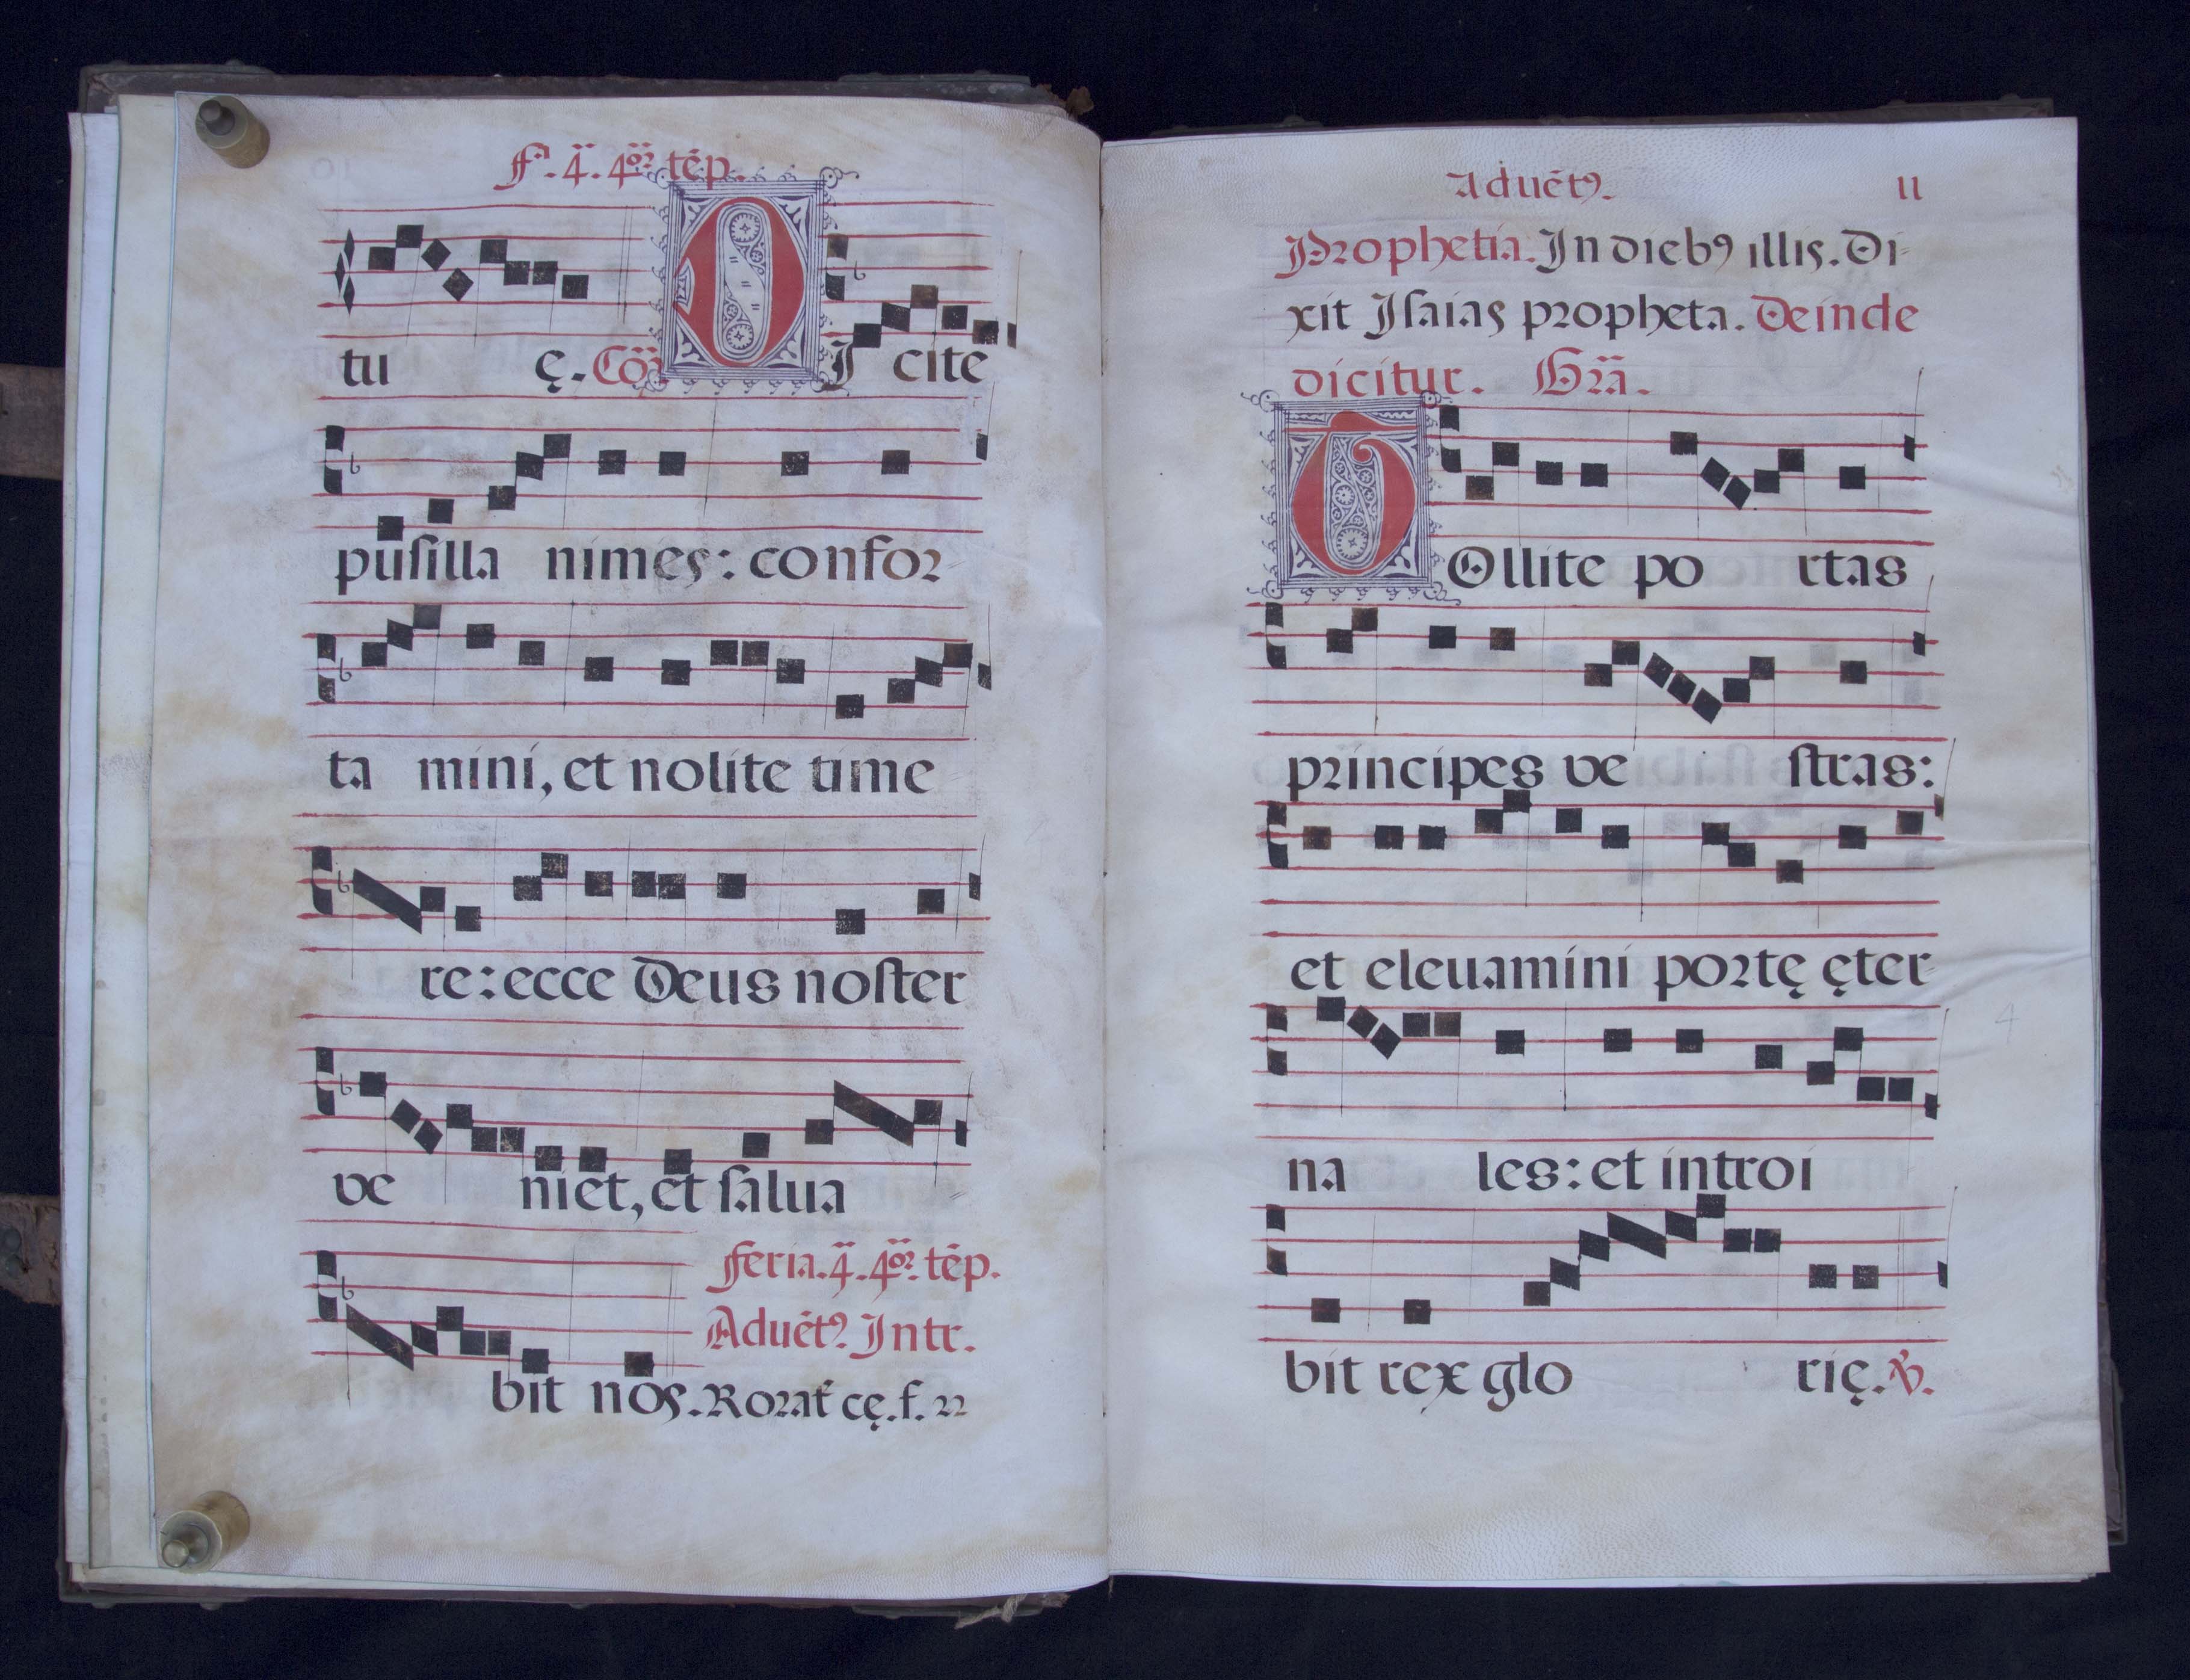 f.ª 4.ª 4.ºʳ tēp.
tu ę. Cõ. DI cite
pusilla nimes: confor
ta mini, et nolite time
re: ecce Deus noster
ve niet, et salua
feria. 4.ª 4.ºʳ tēp.
Aduētꝰ. Intr.
bit nos. Rorat cę. f. 22
Aduētꝰ. 11
Prophetia. In diebꝰ illis. Di-
xit Isaias propheta. Deinde
dicitur. Gr̃a.
TOllite po rtas
principes ve stras:
et eleuamini portę ęter
na les: et introi
bit rex glo rię. ℣.